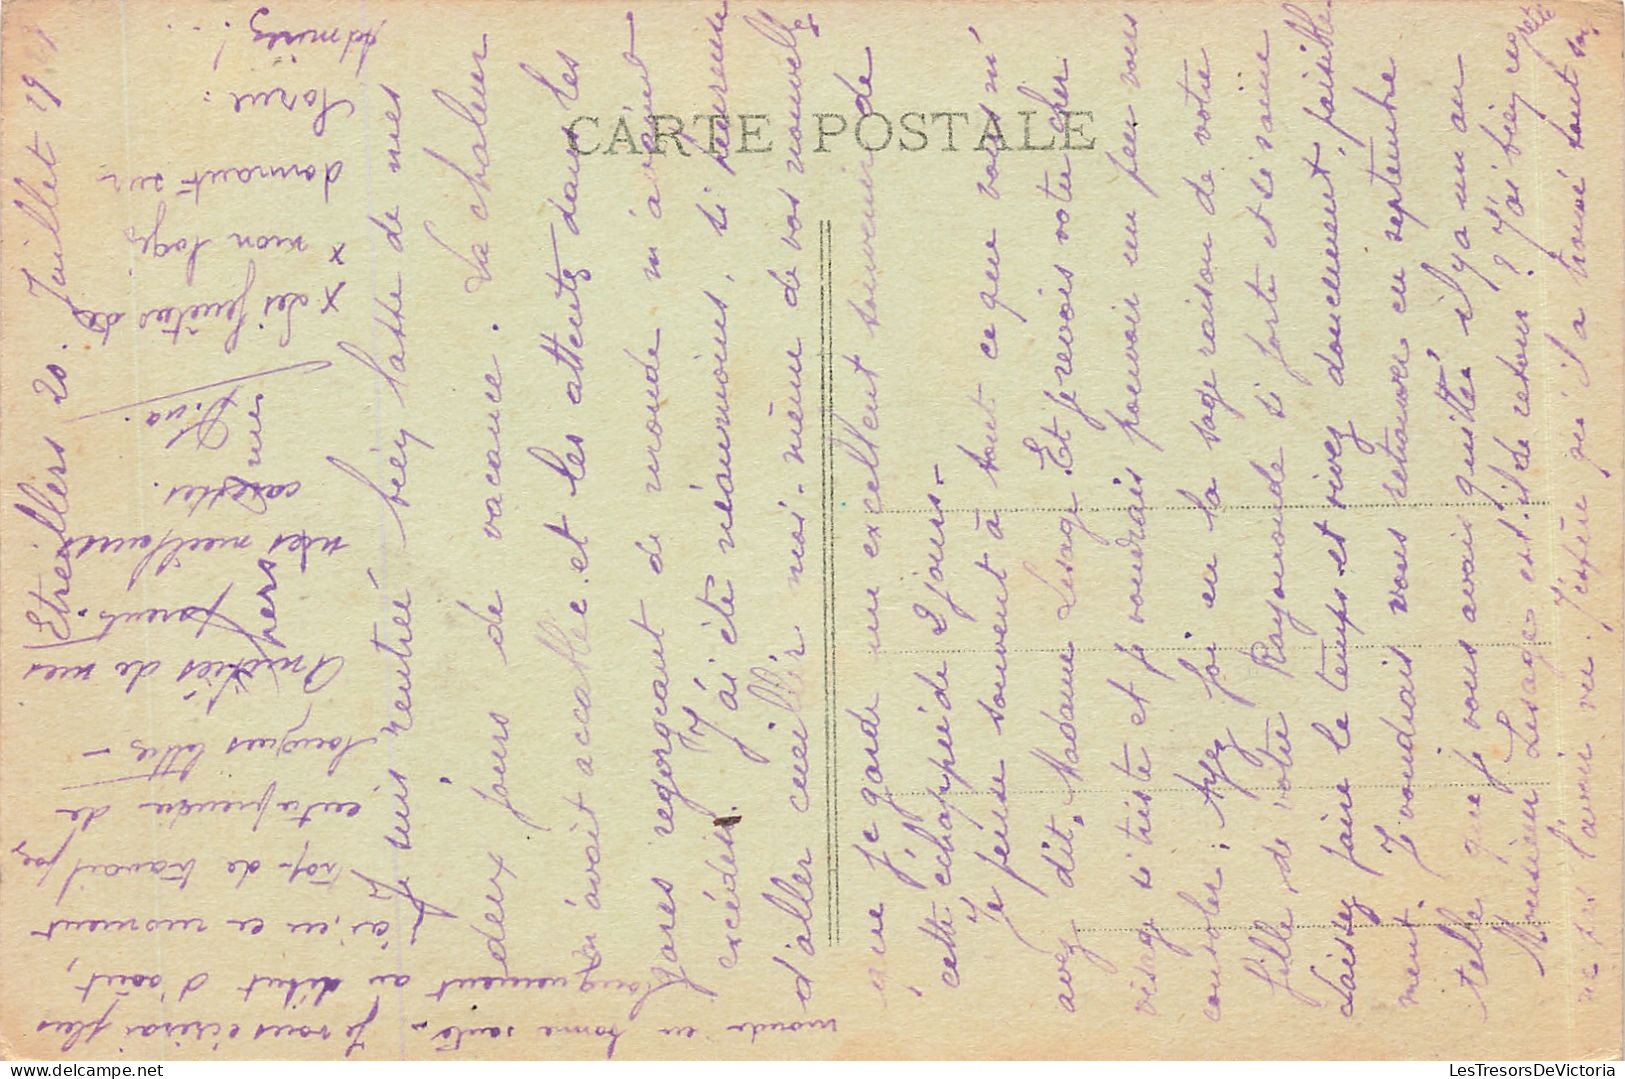 CARTE POSTALE
Etreillers 20. Juillet 19
Je suis rentrée bien lasse de mes
deux jours de vacance. La chaleur
m'avait accablée et les attentes dans les
gares regorgeant de monde m'avaient
excédée.
J'ai été néanmoins, si heureuse
d'aller cueillir moi-même de vos nouvelles
que je garde un excellent souvenir de
cette échappée de 2 jours-
Je pense souvent à tout ce que vous m'
avez dit, Madame Lesage. Et je revois votre cher
visage si triste et je voudrais pouvoir un peu vous
consoler. Ayez foi en la sage raison de votre
fille, de votre Raymonde si forte et si saine
Laissez faire le temps et vivez doucement, paisible
ment. Je voudrais vous retrouver en septembre
telle que je vous avais quittée il y a un an
Monsieur Lesage est-il de retour? J'ai bien
ne pas l'avoir vu. J'espère qu'il a trouvé tout son
monde en bonne santé. Je vous écrirai plus
longuement au début d'août,
j'ai en ce moment
trop de travail pr
entreprendre de
longues lettres -
Amitiés de mes
parents.
mes meilleures
caresses
x des fenêtres de
x mon logs
donnant sur
Admirez!..